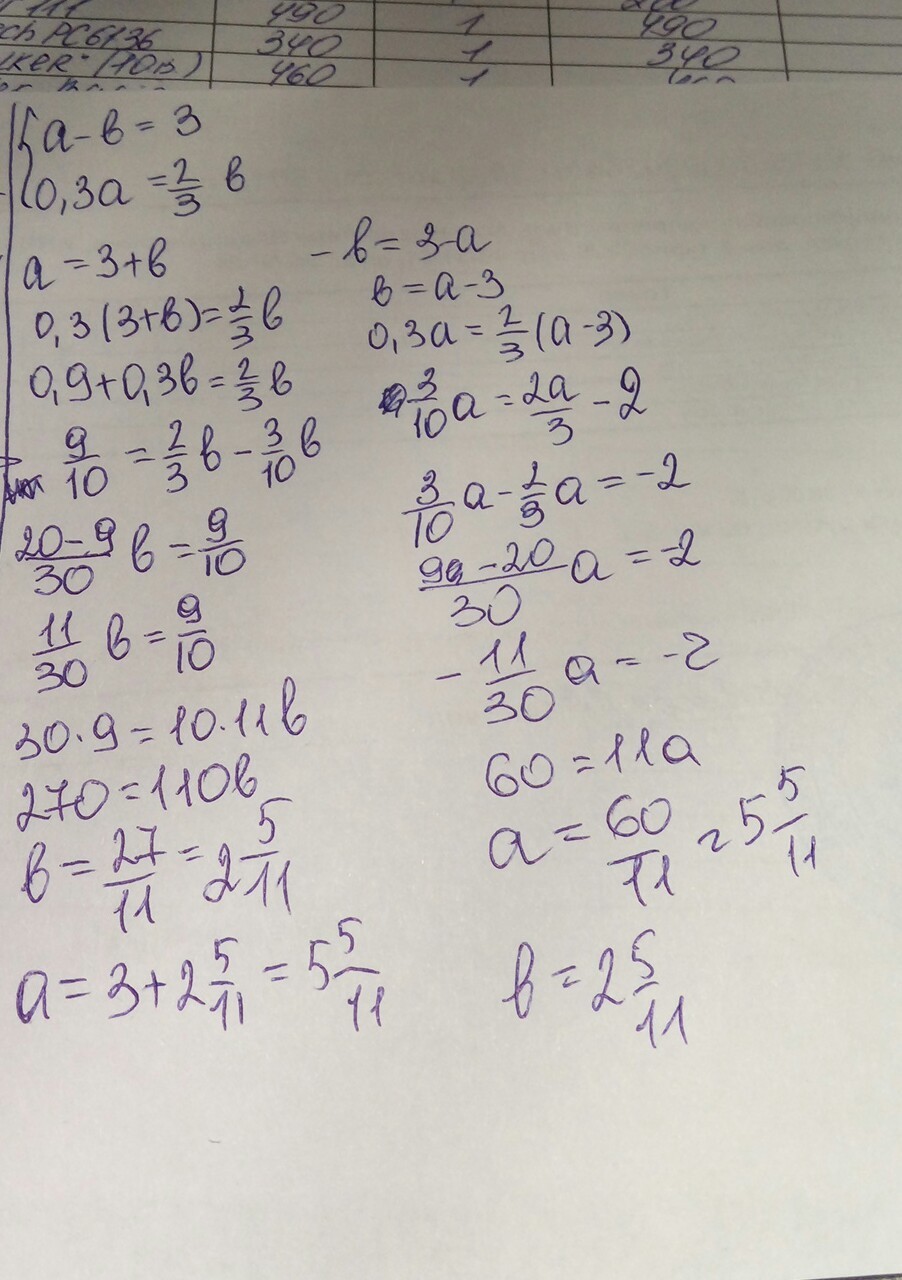 490 1 490
ch PC6136 340 1 340
LKER" (10в) 460 1
{a - в = 3
0,3a = 2/3 в
a = 3 + в
0,3(3+в) = 2/3 в
0,9 + 0,3в = 2/3 в
9/10 = 2/3 в - 3/10 в
20-9/30 в = 9/10
11/30 в = 9/10
30·9 = 10·11в
270 = 110в
в = 27/11 = 2 5/11
a = 3 + 2 5/11 = 5 5/11
- в = 3-a
в = a - 3
0,3a = 2/3 (a - 3)
3/10 a = 2a/3 - 2
3/10 a - 2/3 a = -2
9a - 20/30 a = -2
- 11/30 a = -2
60 = 11a
a = 60/11 = 5 5/11
в = 2 5/11